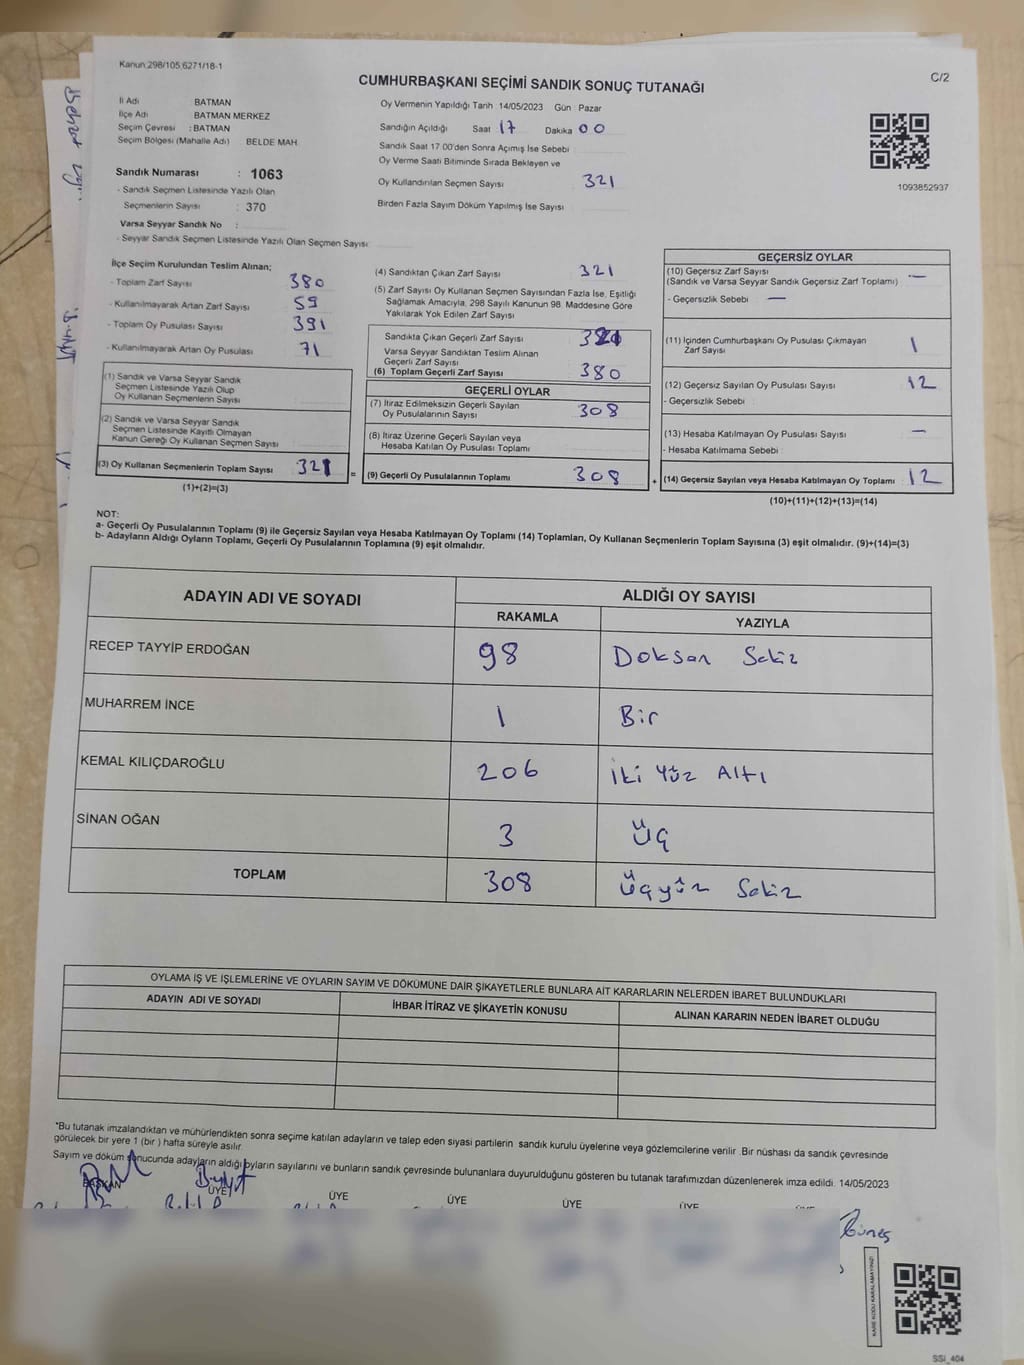 Kanun,298/105,6271/18-1
C/2
CUMHURBAŞKANI SEÇİMİ SANDIK SONUÇ TUTANAĞI
İl Adı BATMAN
İlçe Adı : BATMAN MERKEZ
Seçim Çevresi : BATMAN
Seçim Bölgesi (Mahalle Adı) BELDE MAH.
Sandık Numarası : 1063
- Sandık Seçmen Listesinde Yazılı Olan
Seçmenlerin Sayısı : 370
Varsa Seyyar Sandık No :
- Seyyar Sandık Seçmen Listesinde Yazılı Olan Seçmen Sayısı:
Oy Vermenin Yapıldığı Tarih 14/05/2023 Gün Pazar
Sandığın Açıldığı Saat 17 Dakika 00
Sandık Saat 17.00'den Sonra Açımış İse Sebebi
Oy Verme Saati Bitiminde Sırada Bekleyen ve
Oy Kullandırılan Seçmen Sayısı 321
Birden Fazla Sayım Döküm Yapılmış İse Sayısı
1093852937
İlçe Seçim Kurulundan Teslim Alınan;
- Toplam Zarf Sayısı 380
- Kullanılmayarak Artan Zarf Sayısı 59
- Toplam Oy Pusulası Sayısı 391
- Kullanılmayarak Artan Oy Pusulası 71
(1) Sandık ve Varsa Seyyar Sandık
Seçmen Listesinde Yazılı Olup
Oy Kullanan Seçmenlerin Sayısı
(2) Sandık ve Varsa Seyyar Sandık
Seçmen Listesinde Kayıtlı Olmayan
Kanun Gereği Oy Kullanan Seçmen Sayısı
(3) Oy Kullanan Seçmenlerin Toplam Sayısı 321 =
(1)+(2)=(3)
(4) Sandıktan Çıkan Zarf Sayısı 321
(5) Zarf Sayısı Oy Kullanan Seçmen Sayısından Fazla İse, Eşitliği
Sağlamak Amacıyla, 298 Sayılı Kanunun 98. Maddesine Göre
Yakılarak Yok Edilen Zarf Sayısı
Sandıkta Çıkan Geçerli Zarf Sayısı
Varsa Seyyar Sandıktan Teslim Alınan
Geçerli Zarf Sayısı
(6) Toplam Geçerli Zarf Sayısı 380
GEÇERLİ OYLAR
(7) İtiraz Edilmeksizin Geçerli Sayılan
Oy Pusulalarının Sayısı 308
(8) İtiraz Üzerine Geçerli Sayılan veya
Hesaba Katılan Oy Pusulası Toplamı
(9) Geçerli Oy Pusulalarının Toplamı 308 +
GEÇERSİZ OYLAR
(10) Geçersiz Zarf Sayısı —
(Sandık ve Varsa Seyyar Sandık Geçersiz Zarf Toplamı)
- Geçersizlik Sebebi —
(11) İçinden Cumhurbaşkanı Oy Pusulası Çıkmayan
Zarf Sayısı 1
(12) Geçersiz Sayılan Oy Pusulası Sayısı 12
- Geçersizlik Sebebi
(13) Hesaba Katılmayan Oy Pusulası Sayısı —
- Hesaba Katılmama Sebebi
(14) Geçersiz Sayılan veya Hesaba Katılmayan Oy Toplamı 12
(10)+(11)+(12)+(13)=(14)
NOT:
a- Geçerli Oy Pusulalarının Toplamı (9) ile Geçersiz Sayılan veya Hesaba Katılmayan Oy Toplamı (14) Toplamları, Oy Kullanan Seçmenlerin Toplam Sayısına (3) eşit olmalıdır. (9)+(14)=(3)
b- Adayların Aldığı Oyların Toplamı, Geçerli Oy Pusulalarının Toplamına (9) eşit olmalıdır.
ADAYIN ADI VE SOYADI ALDIĞI OY SAYISI
RAKAMLA YAZIYLA
RECEP TAYYİP ERDOĞAN 98 Doksan Sekiz
MUHARREM İNCE 1 Bir
KEMAL KILIÇDAROĞLU 206 İki Yüz Altı
SİNAN OĞAN 3 Üç
TOPLAM 308 Üçyüz Sekiz
OYLAMA İŞ VE İŞLEMLERİNE VE OYLARIN SAYIM VE DÖKÜMÜNE DAİR ŞİKAYETLERLE BUNLARA AİT KARARLARIN NELERDEN İBARET BULUNDUKLARI
ADAYIN ADI VE SOYADI İHBAR İTİRAZ VE ŞİKAYETİN KONUSU ALINAN KARARIN NEDEN İBARET OLDUĞU
*Bu tutanak imzalandıktan ve mühürlendikten sonra seçime katılan adayların ve talep eden siyasi partilerin sandık kurulu üyelerine veya gözlemcilerine verilir .Bir nüshası da sandık çevresinde
görülecek bir yere 1 (bir ) hafta süreyle asılır
Sayım ve döküm sonucunda adayların aldığı oyların sayılarını ve bunların sandık çevresinde bulunanlara duyurulduğunu gösteren bu tutanak tarafımızdan düzenlenerek imza edildi. 14/05/2023
BAŞKAN ÜYE ÜYE ÜYE ÜYE ÜYE
Güneş
KARE KODU KARALAMAYINIZ!
SSI_404